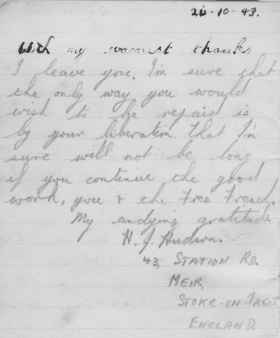 20-10-43.
With my warmest thanks
I leave you. I'm sure that
the only way you would
wish to be repaid is
by your liberation that I'm
sure will not be long
if you continue the good
work, you & the free French.
My undying gratitude
H. J. Hudson.
43, STATION RD.
MEIR,
STOKE-ON-TRENT
ENGLAND